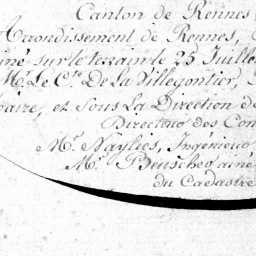 Canton de Rennes
Arrondissement de Rennes,
iné sur le terrain le 25 Juille
Mr. Le Cte. De la Villegontier,
raire, et sous la Direction d
Directeur des Con
Mr. Naylies, Ingénieur
Mr. Beuscher ainé
du Cadastre